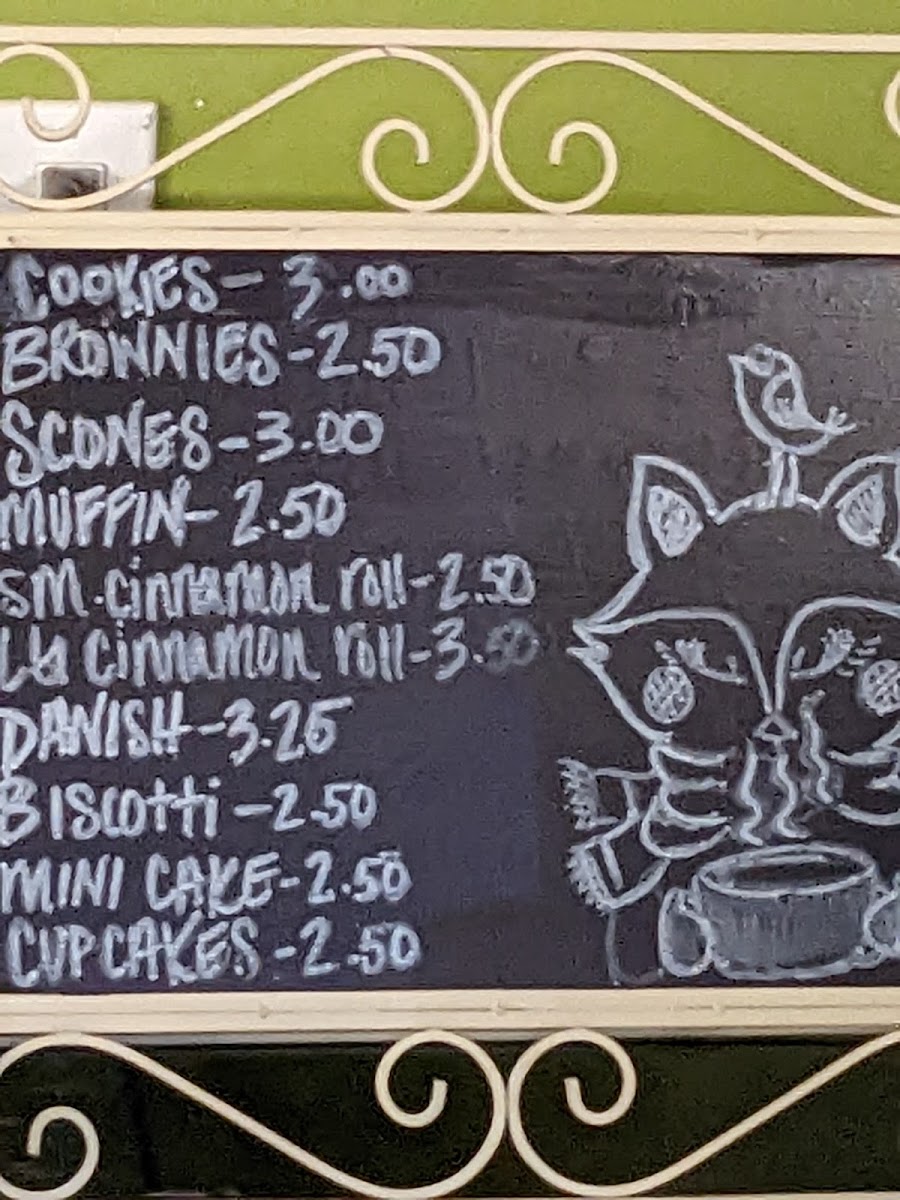 COOKIES - 3.00
BROWNIES - 2.50
SCONES - 3.00
MUFFIN - 2.50
SM. cinnamon roll - 2.50
LG cinnamon roll - 3.50
DANISH - 3.25
BIScotti - 2.50
MINI CAKE - 2.50
CUPCAKES - 2.50